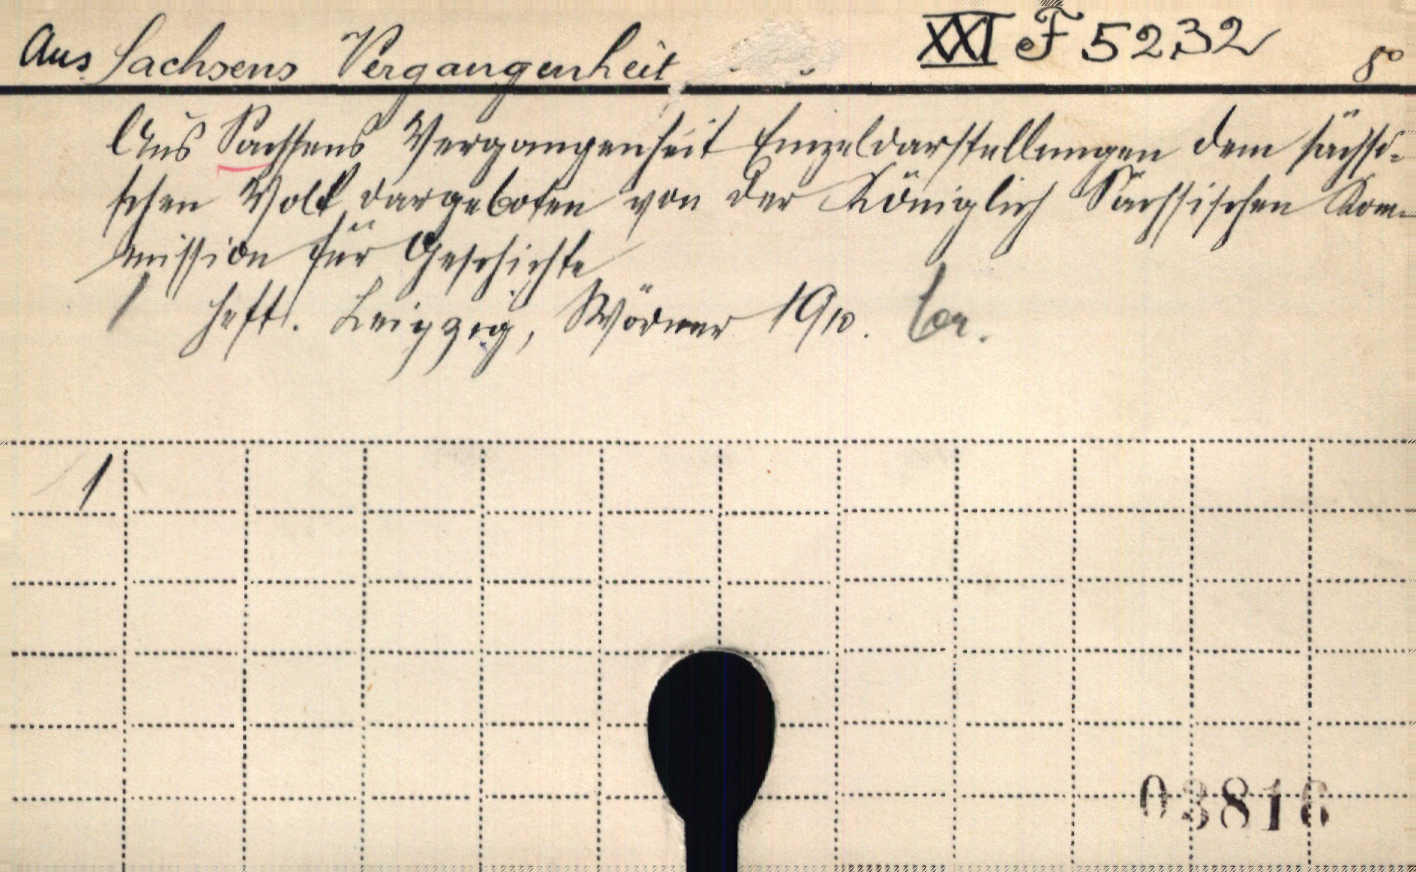 Aus Sachsens Vergangenheit XXI F 5232 8°
Aus Sachsens Vergangenheit Einzeldarstellungen dem sächsi-
schen Volk dargeboten von der Königlich Sächsischen Kom-
mission für Geschichte
1 Heft. Leipzig, 1910. br.
1
03816